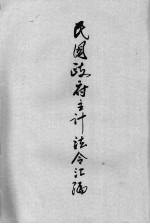 民国政府主计法令汇编